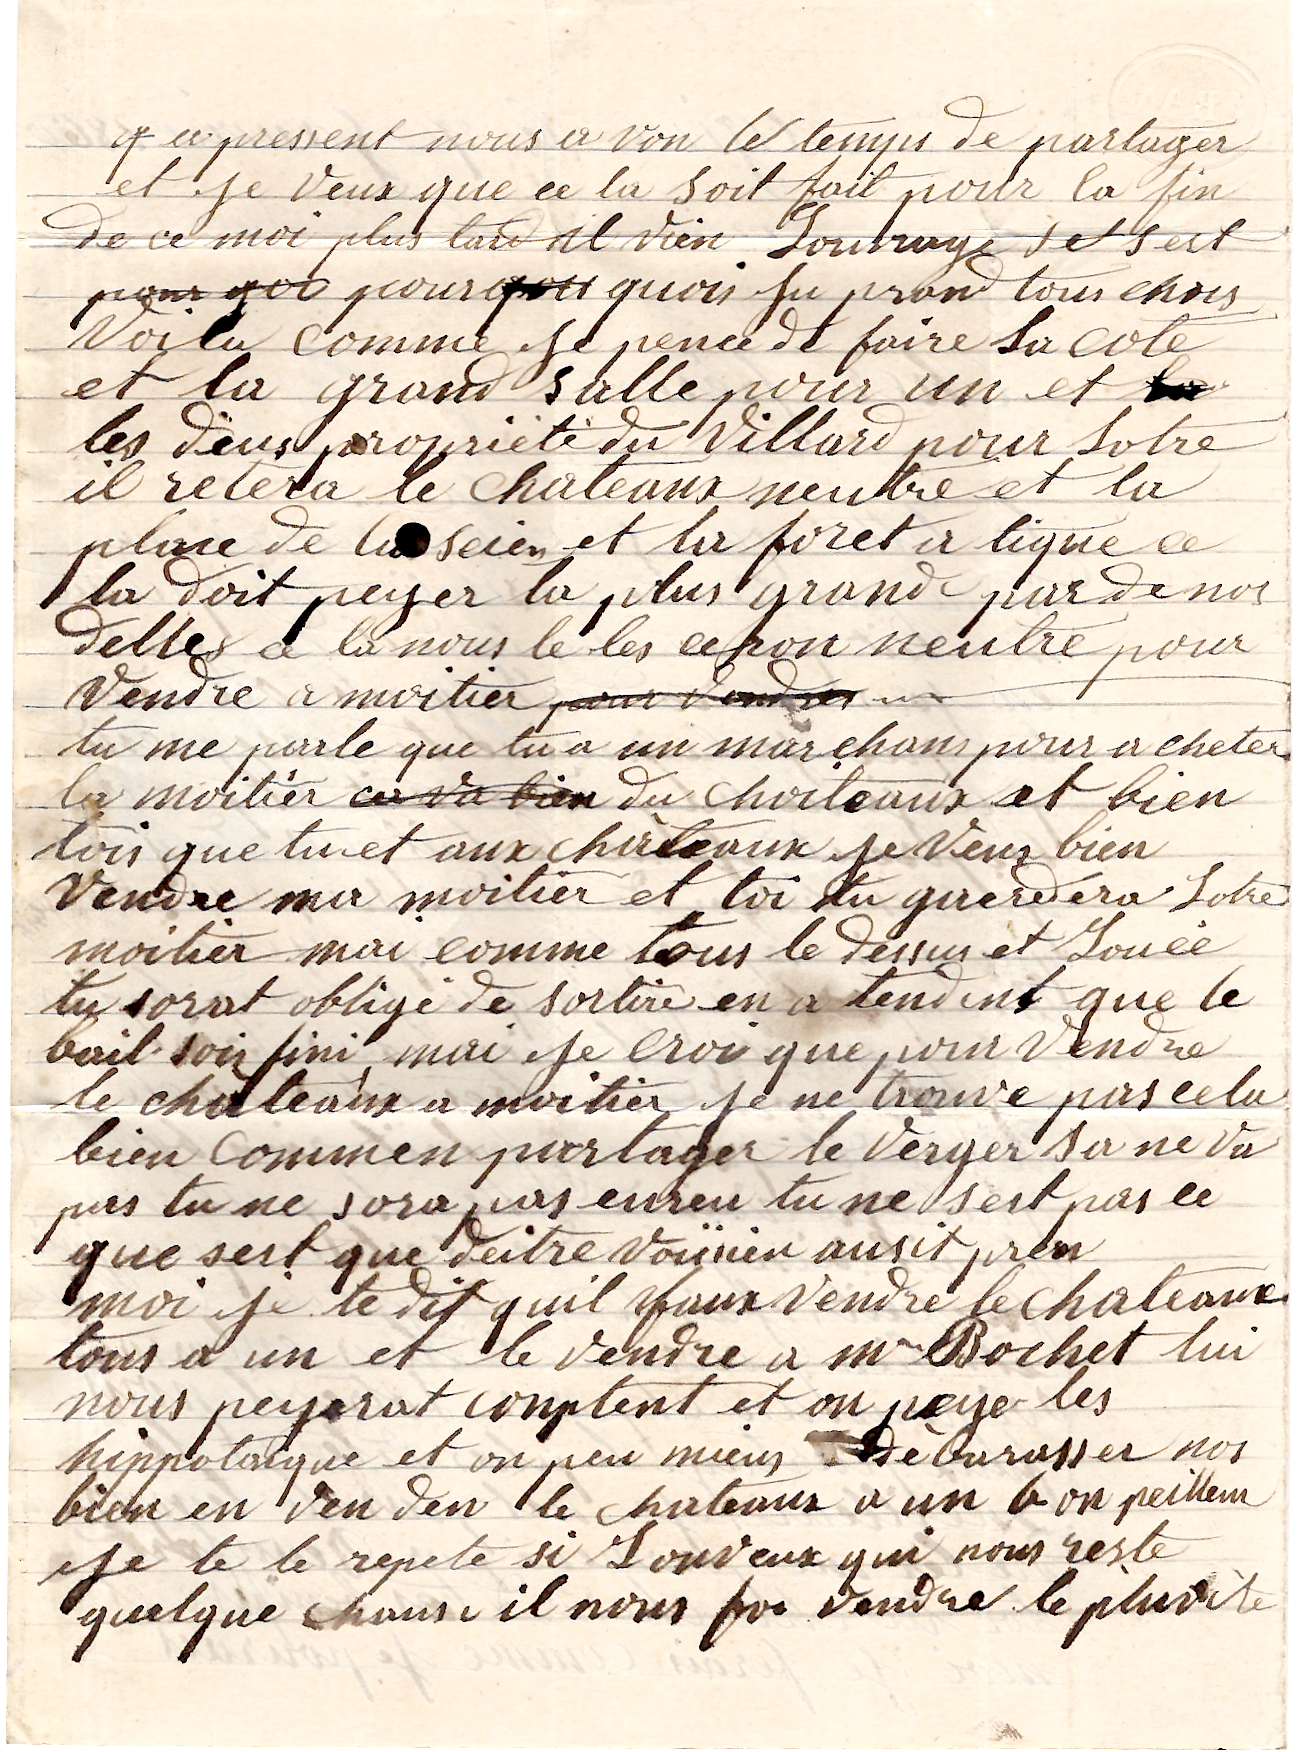 a pressent nous a von le temps de partager
et je veux que ce la soit fait pour la fin
de ce moi plus tard il vien Louvrage set sest
pour qoi pourqoi quois ju prand tous chois
Voila comme je pence de faire La cote
et la grand salle pour un et la
les deus propriété du Villard pour Lotre
il retera le chateaux neutre et la
place de la seien et la foret a ligue ce
la doit peyer la plus grand par de nos
dettes ce la nous le les ceron neutre pour
vendre a moitier pour vendres un
tu me parle que tu a un marchan pour a cheter
la moitier ca va bien du chateaux et bien
tois que tu et aux châteaux je veus bien
vendre ma moitier et toi tu guerdera Lotre
moitier mai comme tous le dessus et Louée
tu sorat obligé de sortire en a tendent que le
bail soit fini mai je croi que pour vendre
le chateaux a moitier je ne trouve pas cela
bien commen partager le verger sa ne va
pas tu ne sora pas eureu tu ne sest pas ce
que sest que deitre voisien ausit pren
moi je te dit quil faux vendre le chateaux
tous a un et le vendre a mr Bochet lui
nous peyerat comptent et on peye les
hippotaique et on peu mieus débarasser nos
bien en ven den le chateaux a un bon peillem
je te le repete si Lonveux qui nous reste
quelque chause il nous fo vendre le pluvite